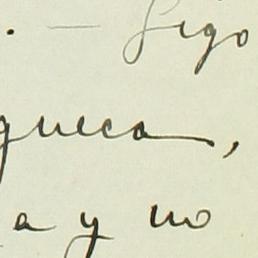 . — Sigo
queca,
a y no